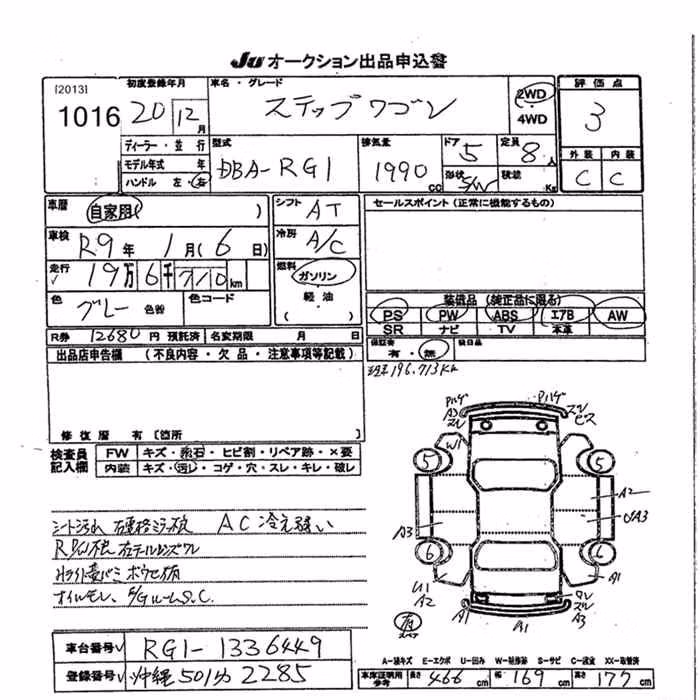 JU オークション出品申込書
[2013]
1016
初度登録年月
20 12 月
車名・グレード
ステップワゴン
2WD
4WD
評価点
3
ディーラー・並行
モデル年式 年
ハンドル 左・右
型式
DBA-RG1
排気量
1990 CC
ドア
5
定員
8 人
形状
S/W
積載
Kg
外装 内装
C C
車歴
自家用( )
シフト
AT
セールスポイント (正常に機能するもの)
車検
R9 年 1 月 (6 日)
冷房
A/C
走行
19 万 6 千 710 km
燃料
ガソリン
軽油
( )
色
グレー 色替
色コード
装備品 (純正品に限る)
PS PW ABS エアB AW
SR ナビ TV 本革
R券 12680 円 預託済
名変期限 月 日
保証書
有・無
後日品
出品店申告欄 (不良内容・欠品・注意事項等記載)
現在196,713Km
修復歴 有 [箇所 ]
検査員
記入欄
FW キズ・飛石・ヒビ割・リペア跡・×要
内装 キズ・汚レ・コゲ・穴・スレ・キレ・破レ
シート汚れ
AC冷え弱い
オイルモレ、
ハゲ
A3
スレ
ハゲ
スレ
ビス
W1
5
5
A2
A3
UA3
6
6
U1
A2
A1
A1
A1
スレ
A3
有
スペア
車台番号 RG1-1336449
登録番号 沖縄 501 2285
A-線キズ E-エクボ U-凹み W-補修跡 S-サビ C-腐食 XX-取替済
車庫証明用
参考
長さ 466 cm 幅 169 cm 高さ 177 cm